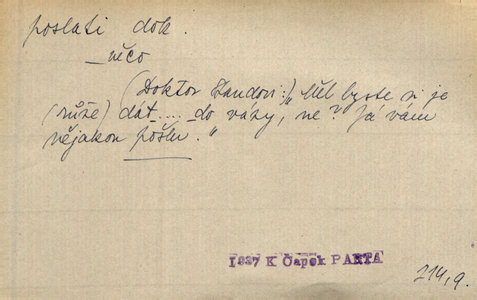 poslati dok.
něco
(DoktorЛандovi:) „Měl byste si je
(růže) dát .... do vázy, ne? Já vám
nějakou pošlu."
1937 K Čapek PARTA
214,9.